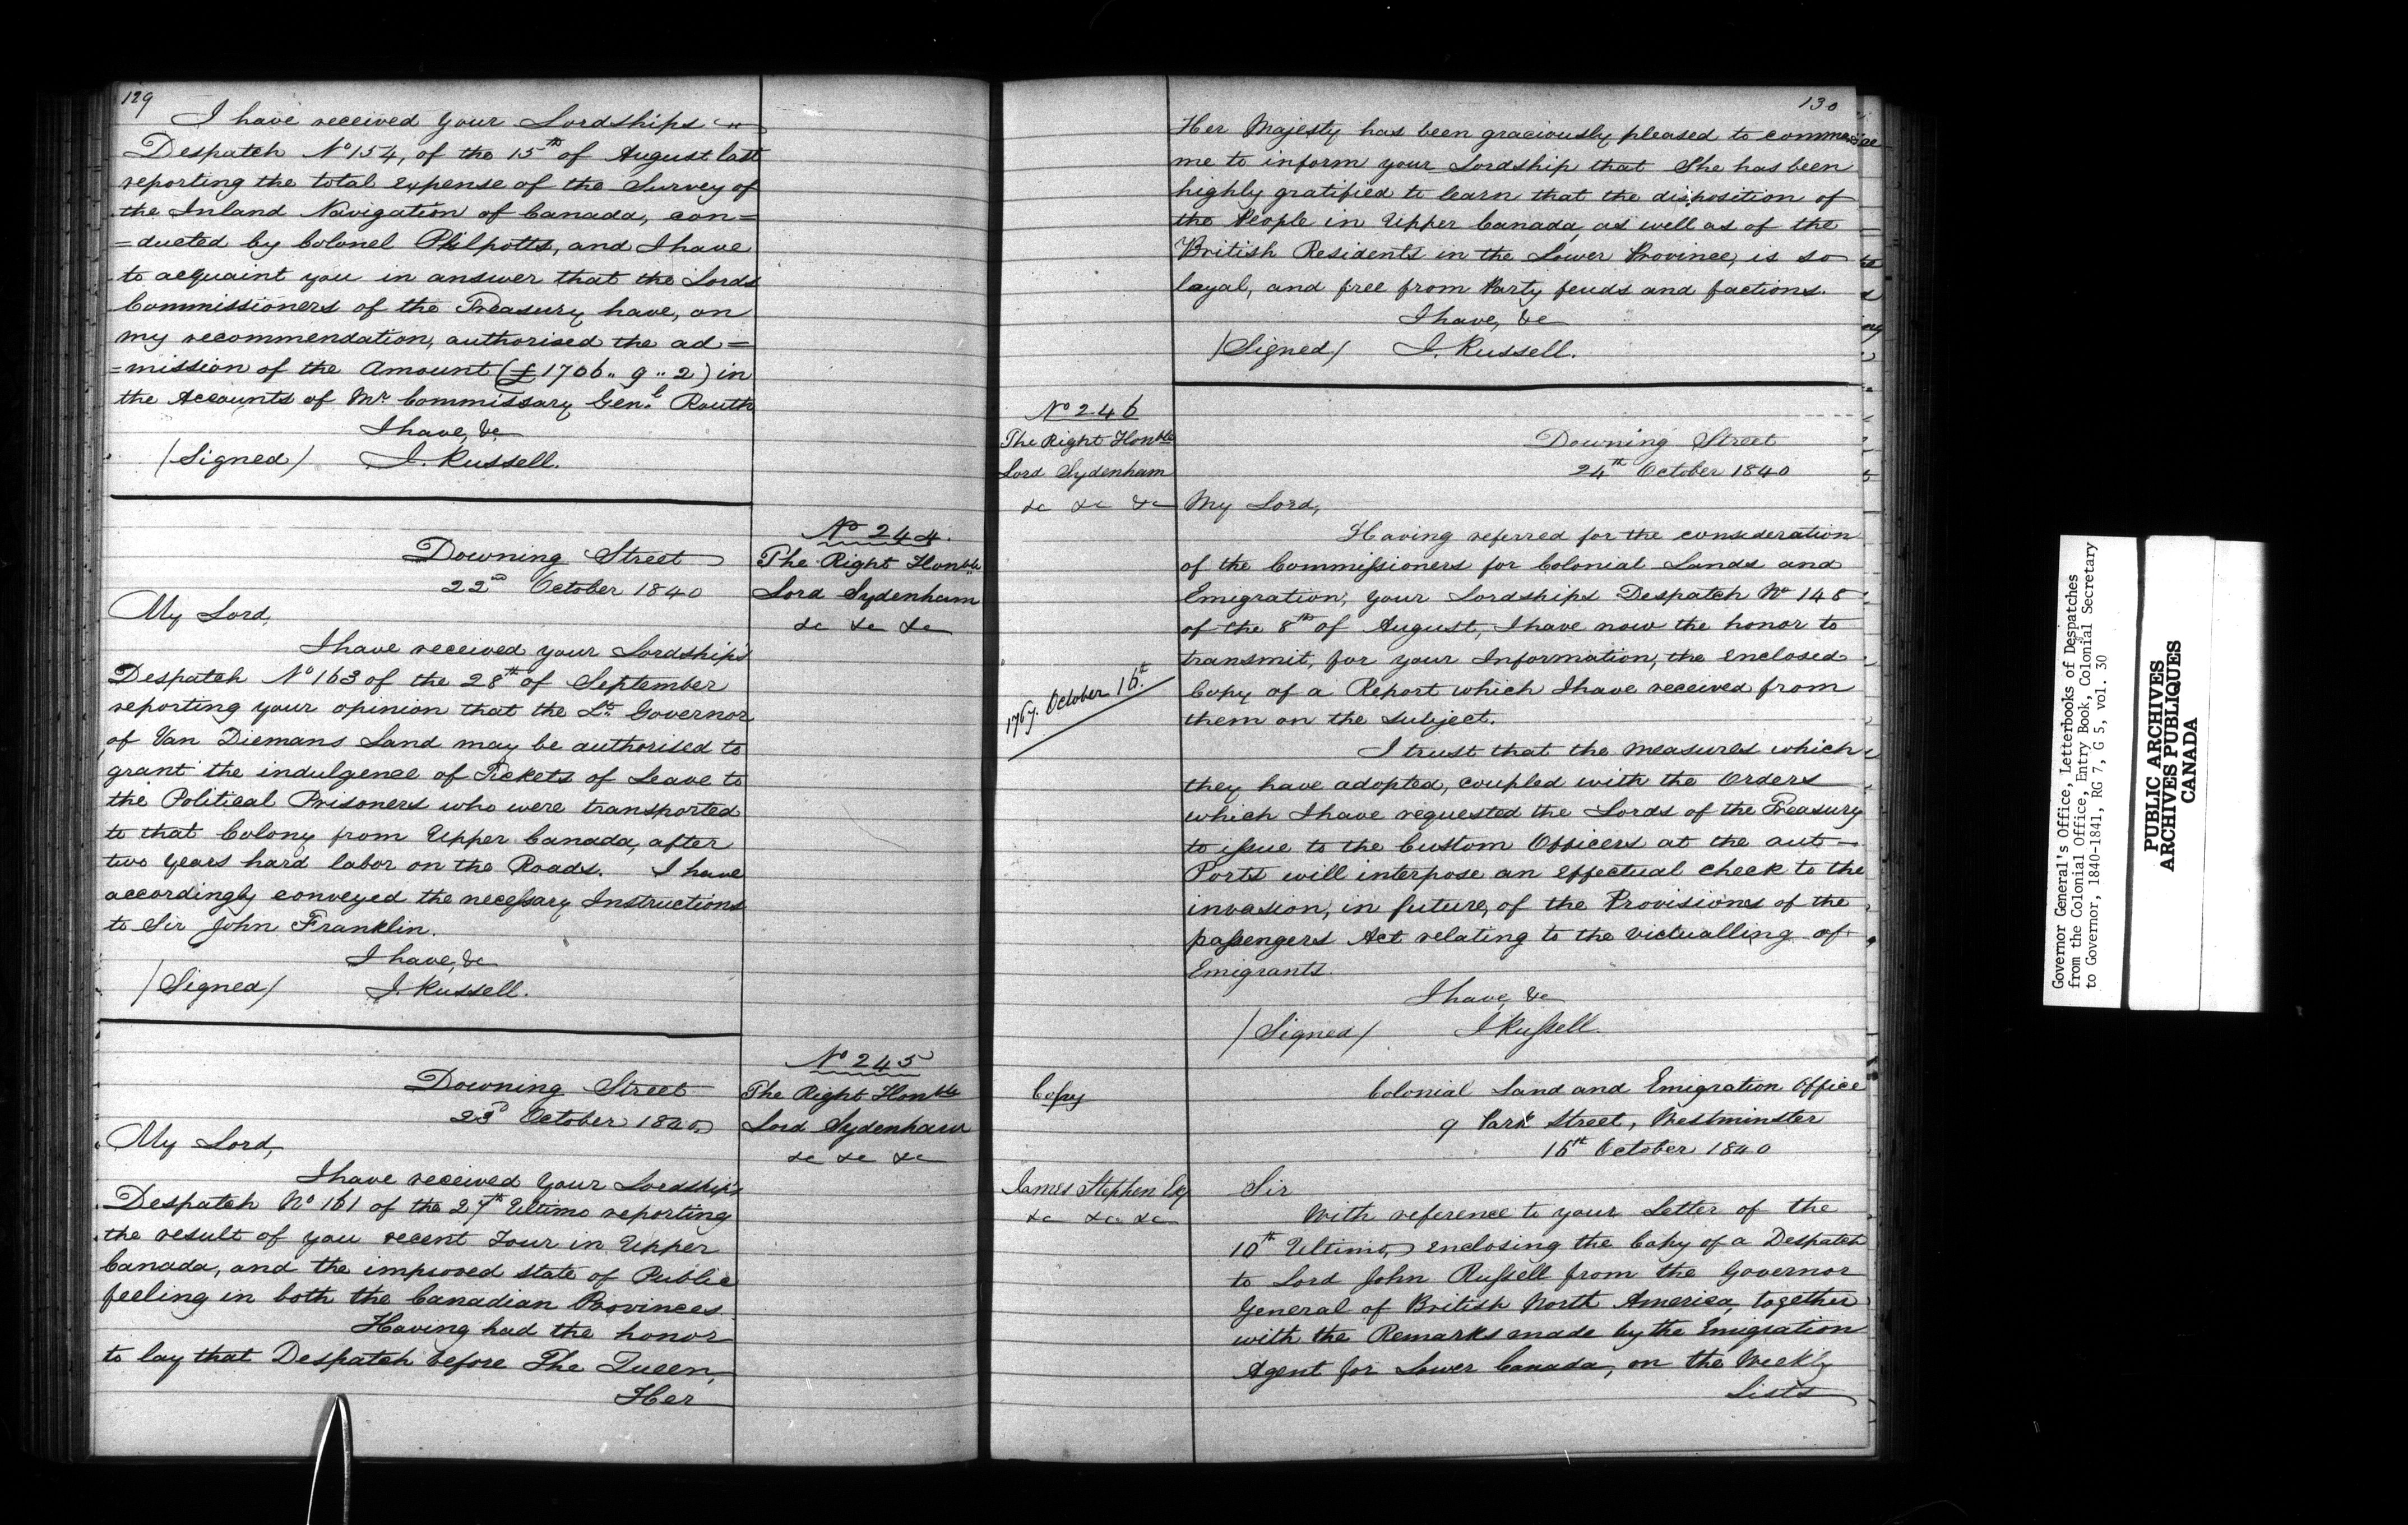 129
I have received your Lordships
Despatch No 154, of the 15th of August last
reporting the total expense of the Survey of
the Inland Navigation of Canada, con=
=ducted by Colonel Philpotts, and I have
to acquaint you in answer that the Lords
Commissioners of the Treasury have, on
my recommendation, authorised the ad=
=mission of the Amount (£1706.. 9 .. 2) in
the Accounts of Mr Commissary Genl Routh
I have, &c
/Signed/ J. Russell.
No 244.
The Right Honble
Lord Sydenham
&c &c &c
Downing Street
22nd October 1840
My Lord,
I have received your Lordship's
Despatch No 163 of the 28th of September
reporting your opinion that the Lt Governor
of Van Diemans Land may be authorised to
grant the indulgence of Tickets of Leave to
the Political Prisoners who were transported
to that Colony from Upper Canada, after
two years hard labor on the Roads. I have
accordingly conveyed the necessary Instructions
to Sir John Franklin.
I have, &c
/Signed/ J. Russell.
No 245
The Right Honble
Lord Sydenham
&c &c &c
Downing Street
23d October 1840
My Lord,
I have received your Lordship's
Despatch No 161 of the 27th Ultimo reporting
the result of you recent Tour in Upper
Canada, and the improved state of Public
feeling in both the Canadian Provinces
Having had the honor
to lay that Despatch before The Queen,
Her
130
Her Majesty has been graciously pleased to command
me to inform your Lordship that She has been
highly gratified to learn that the disposition of
the People in Upper Canada, as well as of the
British Residents in the Lower Province, is so
loyal, and free from Party feuds and factions.
I have, &c
/Signed/ J. Russell.
No 246
The Right Honble
Lord Sydenham
&c &c &c
Downing Street
24th October 1840
My Lord,
Having referred for the consideration
of the Commissioners for Colonial Lands and
Emigration, your Lordships Despatch No 148
of the 8th of August, I have now the honor to
transmit, for your Information, the enclosed
Copy of a Report which I have received from
them on the subject.
1767. October 16th.
I trust that the measures which
they have adopted, coupled with the Orders
which I have requested the Lords of the Treasury
to issue to the Custom Officers at the out-
Ports will interpose an effectual check to the
invasion, in future, of the Provisions of the
passengers Act relating to the victualling of
Emigrants.
I have, &c
/Signed/ J Russell.
Copy
Colonial Land and Emigration Office
9 Park Street, Westminster
16th October 1840
James Stephen Esq
&c &c &c
Sir
With reference to your Letter of the
10th Ultimo, enclosing the Copy of a Despatch
to Lord John Russell from the Governor
General of British North America, together
with the Remarks made by the Emigration
Agent for Lower Canada, on the Weekly
Lists
Governor General's Office, Letterbooks of Despatches
from the Colonial Office, Entry Book, Colonial Secretary
to Governor, 1840-1841, RG 7, G 5, vol. 30
PUBLIC ARCHIVES
ARCHIVES PUBLIQUES
CANADA